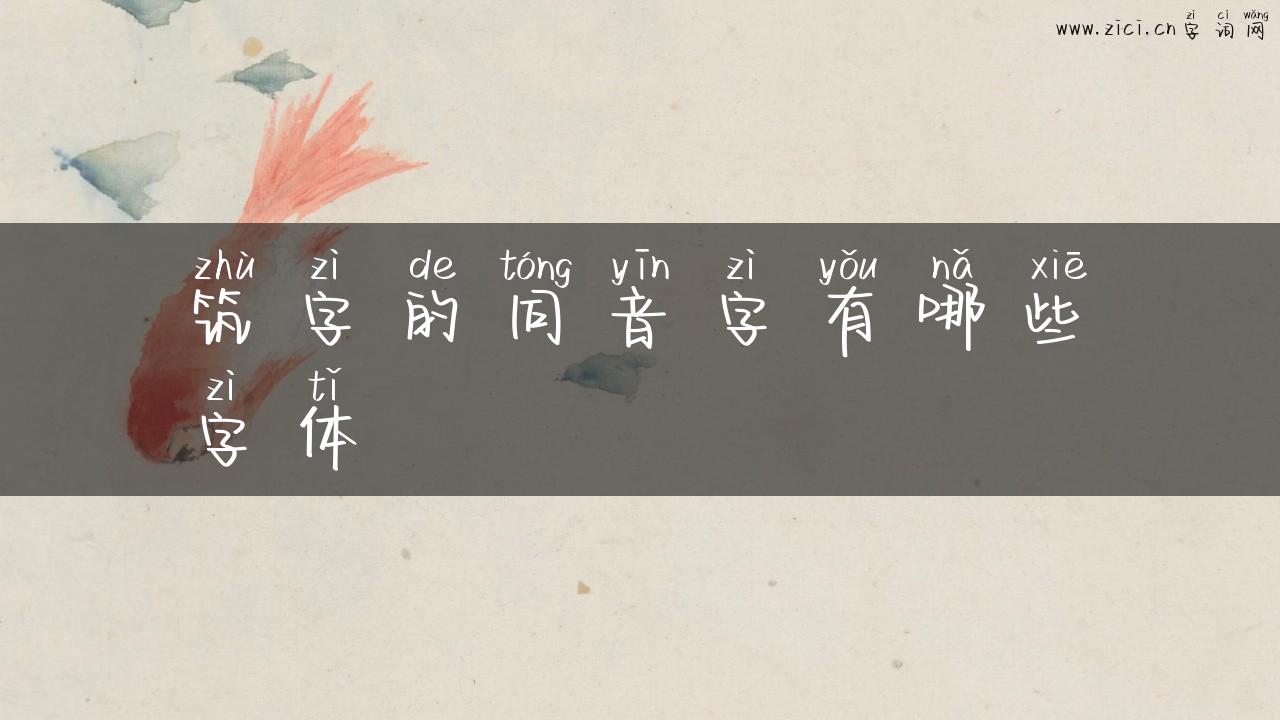 zì cí wǎng
www.zici.cn 字词网
zhù zì de tóng yīn zì yǒu nǎ xiē
筑字的同音字有哪些
zì tǐ
字体